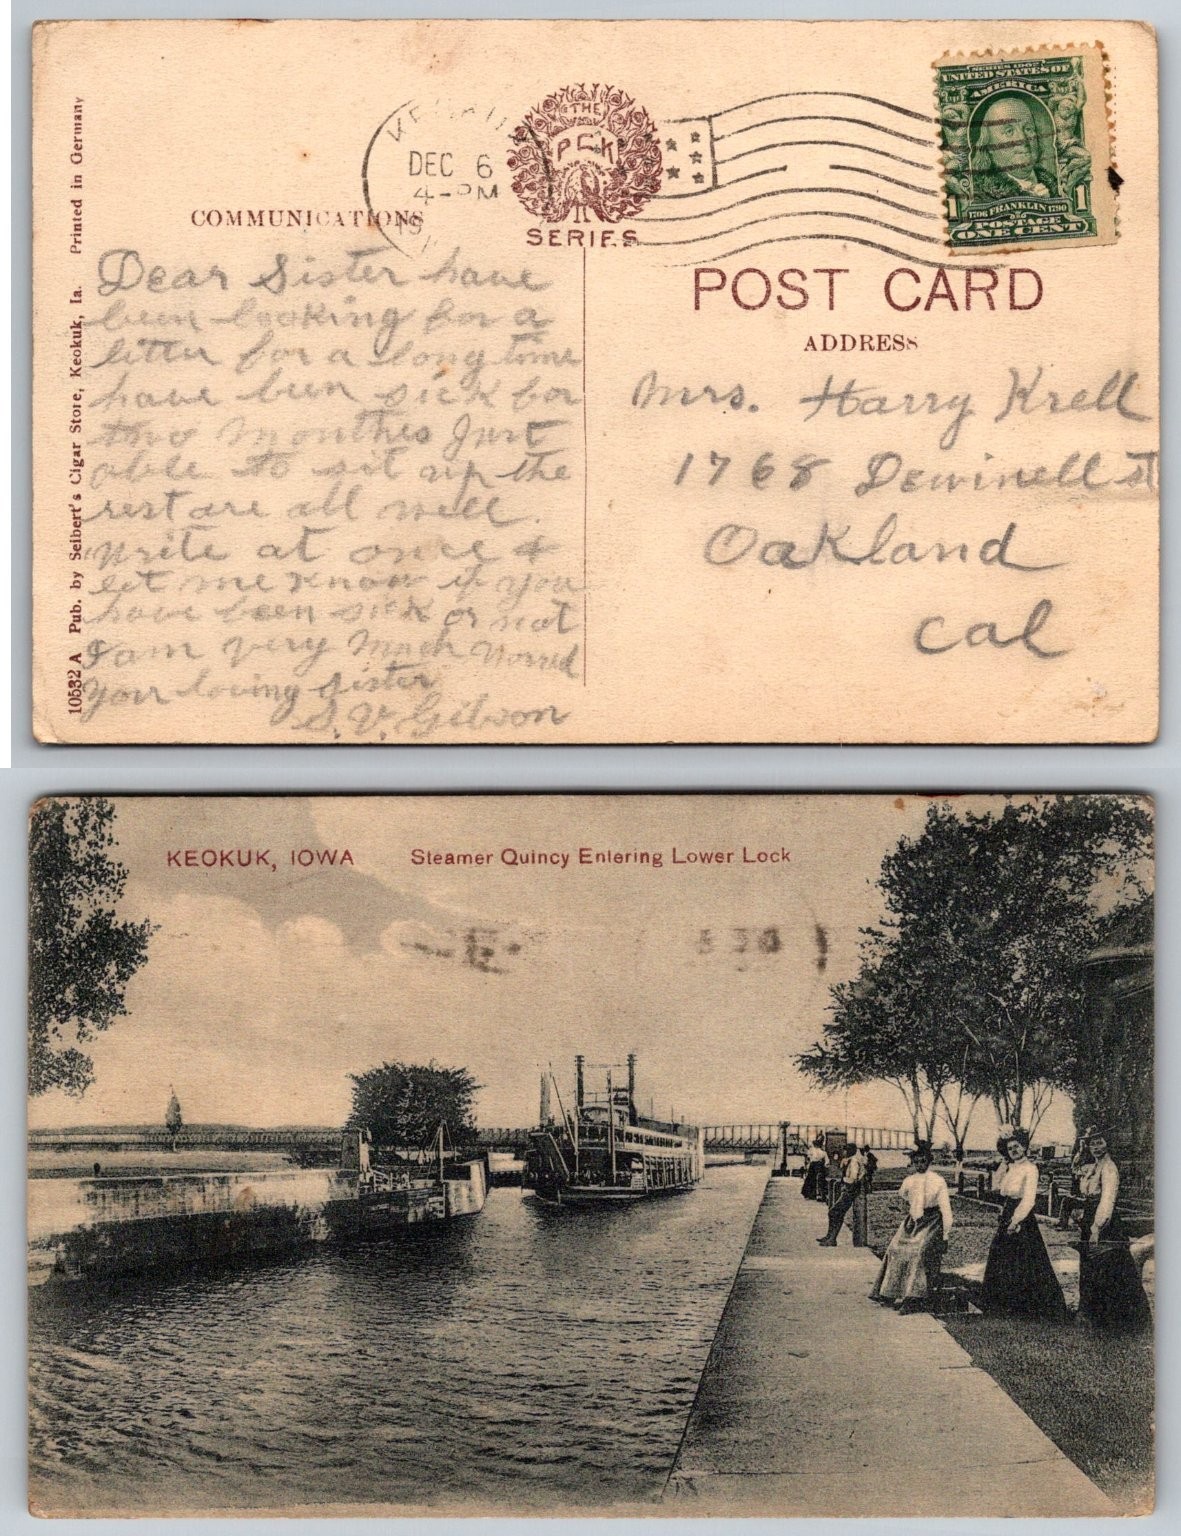 10532 A Pub. by Seibert's Cigar Store, Keokuk, Ia. Printed in Germany
DEC 6
4-PM
THE
PCK
SERIES
SERIES 1902
UNITED STATES OF
AMERICA
1 1
1706 FRANKLIN 1790
POSTAGE
ONE CENT
COMMUNICATIONS
Dear Sister have
been looking for a
letter for a long time
have been sick for
two Monthes Just
able to sit up the
rest are all well.
Write at once &
let me know if you
have been sick or not
I am very Much Worred
Your loving sister
S. V. Gibson
POST CARD
ADDRESS
Mrs. Harry Krell
1768 Dewinell st
Oakland
Cal
KEOKUK, IOWA Steamer Quincy Entering Lower Lock